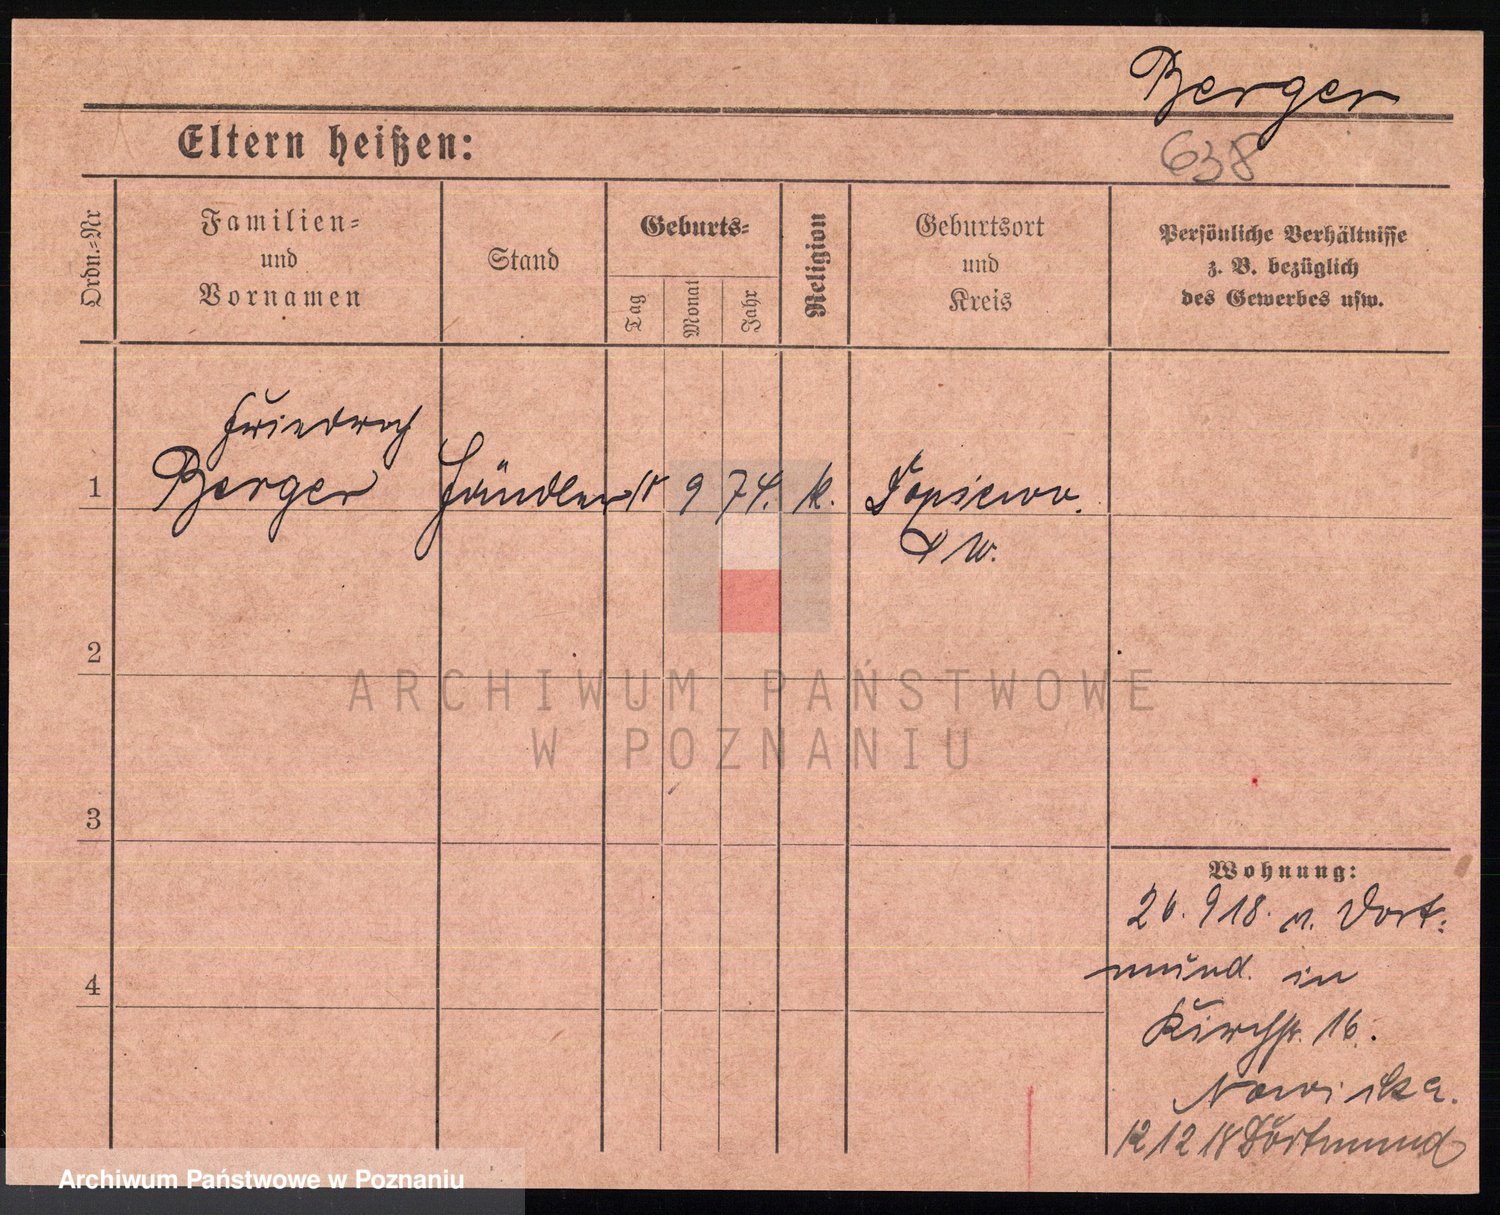 Berger
638
Eltern heißen:
Ordn.=Nr
Familien=
und
Vornamen
Stand
Geburts=
Tag
Monat
Jahr
Religion
Geburtsort
und
Kreis
Persönliche Verhältnisse
z. B. bezüglich
des Gewerbes usw.
Friedrich
1 Berger Händler 9 74. k.
W.
2
ARCHIWUM PAŃSTWOWE
W POZNANIU
3
Wohnung:
26. 9 18. v. Dort=
mund. in
4
Kirchstr. 16.
Nowicka.
12 12 18 Dortmund
Archiwum Państwowe w Poznaniu